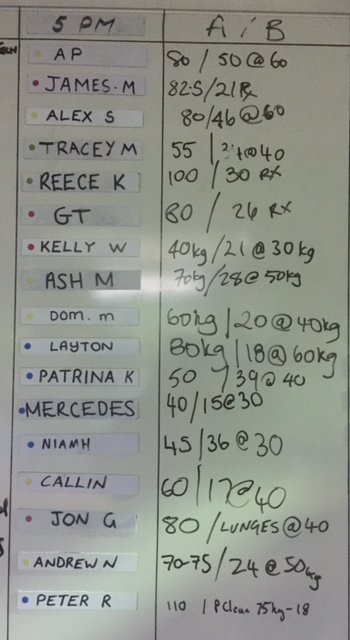 5 PM A / B
AP 80 / 50 @ 60
JAMES.M 82.5/21 Rx
ALEX S 80/46 @ 60
TRACEY M 55 | @ 40
REECE K 100 / 30 RX
GT 80 / 26 RX
KELLY W 40kg / 21 @ 30 kg
ASH M 70kg/28@ 50kg
DOM. m 60kg | 20 @ 40kg
LAYTON 80kg | 18 @ 60kg
PATRINA K 50 / 39 @ 40
MERCEDES 40/15@30
NIAMH 45/36 @ 30
CALLIN 60 | 17@40
JON G 80 / LUNGES @ 40
ANDREW N 70-75 / 24 @ 50kg
PETER R 110 | PClean 75kg-18